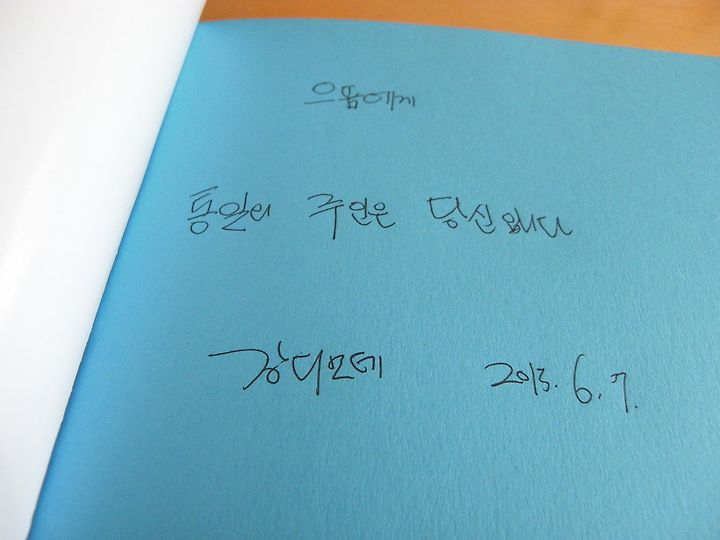 으뜸에게
통일의 주인은 당신입니다
강디모데 2013. 6. 7.